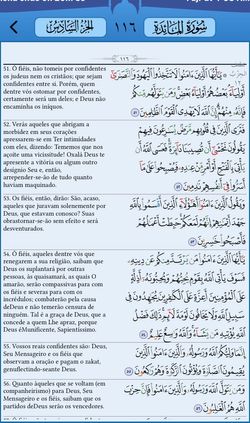 سُورَةُ المَائِدَة
١١٦
الجُزْءُ السَّادِسُ
١١٦
51. Ó fiéis, não tomeis por confidentes
os judeus nem os cristãos; que sejam
confidentes entre si. Porém, quem
dentre vós os tomar por confidentes,
certamente será um deles; e Deus não
encaminha os iníquos.
يَٰٓأَيُّهَا ٱلَّذِينَ ءَامَنُوا۟ لَا تَتَّخِذُوا۟ ٱلْيَهُودَ وَٱلنَّصَٰرَىٰٓ
أَوْلِيَآءَ بَعْضُهُمْ أَوْلِيَآءُ بَعْضٍ وَمَن يَتَوَلَّهُم مِّنكُمْ
فَإِنَّهُۥ مِنْهُمْ إِنَّ ٱللَّهَ لَا يَهْدِى ٱلْقَوْمَ ٱلظَّٰلِمِينَ ٥١
52. Verás aqueles que abrigam a
morbidez em seus corações
apressarem-se em Ter intimidades
com eles, dizendo: Tememos que nos
açoite uma vicissitude! Oxalá Deus te
apresente a vitória ou algum outro
desígnio Seu e, então,
arrepender-se-ão de tudo quanto
haviam maquinado.
فَتَرَى ٱلَّذِينَ فِى قُلُوبِهِم مَّرَضٌ يُسَٰرِعُونَ فِيهِمْ
يَقُولُونَ نَخْشَىٰٓ أَن تُصِيبَنَا دَآئِرَةٌ فَعَسَى ٱللَّهُ أَن
يَأْتِىَ بِٱلْفَتْحِ أَوْ أَمْرٍ مِّنْ عِندِهِۦ فَيُصْبِحُوا۟ عَلَىٰ مَآ
أَسَرُّوا۟ فِىٓ أَنفُسِهِمْ نَٰدِمِينَ ٥٢
53. Os fiéis, então, dirão: São, acaso,
aqueles que juravam solenemente por
Deus, que estavam conosco? Suas
obras​tornar-se-ão sem efeito e será
desventurados.
وَيَقُولُ ٱلَّذِينَ ءَامَنُوٓا۟ أَهَٰٓؤُلَآءِ ٱلَّذِينَ أَقْسَمُوا۟ بِٱللَّهِ
جَهْدَ أَيْمَٰنِهِمْ إِنَّهُمْ لَمَعَكُمْ حَبِطَتْ أَعْمَٰلُهُمْ
فَأَصْبَحُوا۟ خَٰسِرِينَ ٥٣
54. Ó fiéis, aqueles dentre vós que
renegarem a sua religião, saibam que
Deus os suplantará por outras
pessoas, às quais​amará, as quais O
amarão, serão compassivas para com
os fiéis e severas para com os
incrédulos; combaterão pela causa
deDeus e não temerão censura de
ninguém. Tal é a graça de Deus, que a
concede a quem Lhe apraz, porque
Deus éMunificente, Sapientíssimo.
يَٰٓأَيُّهَا ٱلَّذِينَ ءَامَنُوا۟ مَن يَرْتَدَّ مِنكُمْ عَن دِينِهِۦ
فَسَوْفَ يَأْتِى ٱللَّهُ بِقَوْمٍ يُحِبُّهُمْ وَيُحِبُّونَهُۥٓ أَذِلَّةٍ
عَلَى ٱلْمُؤْمِنِينَ أَعِزَّةٍ عَلَى ٱلْكَٰفِرِينَ يُجَٰهِدُونَ فِى
سَبِيلِ ٱللَّهِ وَلَا يَخَافُونَ لَوْمَةَ لَآئِمٍ ذَٰلِكَ فَضْلُ
ٱللَّهِ يُؤْتِيهِ مَن يَشَآءُ وَٱللَّهُ وَٰسِعٌ عَلِيمٌ ٥٤
55. Vossos reais confidentes são: Deus,
Seu Mensageiro e os fiéis que
observam a oração e pagam o zakat,
genuflectindo-seante Deus.
إِنَّمَا وَلِيُّكُمُ ٱللَّهُ وَرَسُولُهُۥ وَٱلَّذِينَ ءَامَنُوا۟ ٱلَّذِينَ
يُقِيمُونَ ٱلصَّلَوٰةَ وَيُؤْتُونَ ٱلزَّكَوٰةَ وَهُمْ رَٰكِعُونَ ٥٥
56. Quanto àqueles que se voltam (em
companheirismo) para Deus, Seu
Mensageiro e os fiéis, saibam que os
partidos deDeus serão os vencedores.
وَمَن يَتَوَلَّ ٱللَّهَ وَرَسُولَهُۥ وَٱلَّذِينَ ءَامَنُوا۟ فَإِنَّ حِزْبَ
ٱللَّهِ هُمُ ٱلْغَٰلِبُونَ ٥٦